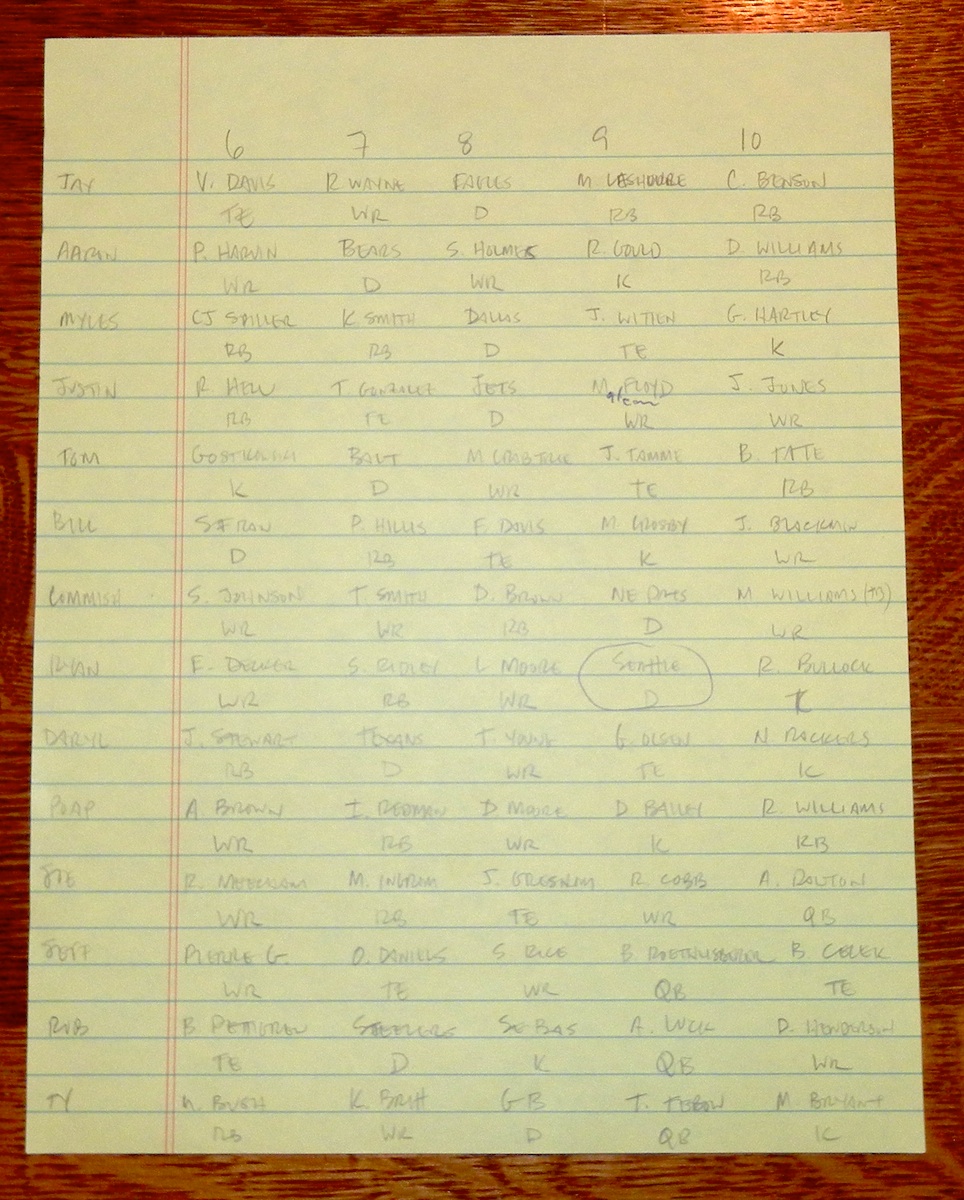 6 7 8 9 10
JAY V. DAVIS R WAYNE EAGLES M LESHOURE C. BENSON
TE WR D RB RB
AARON P. HARVIN BEARS S. HOLMES R. GOULD D. WILLIAMS
WR D WR K RB
MYLES CJ SPILLER K SMITH DALLAS J. WITTEN G. HARTLEY
RB RB D TE K
JUSTIN R HELU T. GONZALEZ JETS M. FLOYD J. JONES
RB TE D WR WR
TOM BALT M CRABTREE J. TAMME B. TATE
K D WR TE RB
BILL S FRAN P. HILLIS F. DAVIS M. CROSBY J. BLACKMON
D RB TE K WR
COMMISH S. JOHNSON T. SMITH D. BROWN NE PATS M WILLIAMS (TB)
WR WR RB D WR
RYAN E. DECKER S. RIDLEY L MOORE SEATTLE R. BULLOCK
WR RB WR D K
DARYL J. STEWART TEXANS T. YOUNG G. OLSEN N RACKERS
RB D WR TE K
POAP A. BROWN I. REDMAN D MOORE D BAILEY R. WILLIAMS
WR RB WR K RB
JOE R. MEACHAM M. INGRAM J. GRESHAM R. COBB A. DALTON
WR RB TE WR QB
JEFF PIERRE G. O. DANIELS S RICE B ROETHLISBERGER B. CELEK
WR TE WR QB TE
ROB B PETTIGREW STEELERS SEBAS A. LUCK D. HENDERSON
TE D K QB WR
TY M. BUSH K. BRITT GB T. TEBOW M. BRYANT
RB WR D QB K